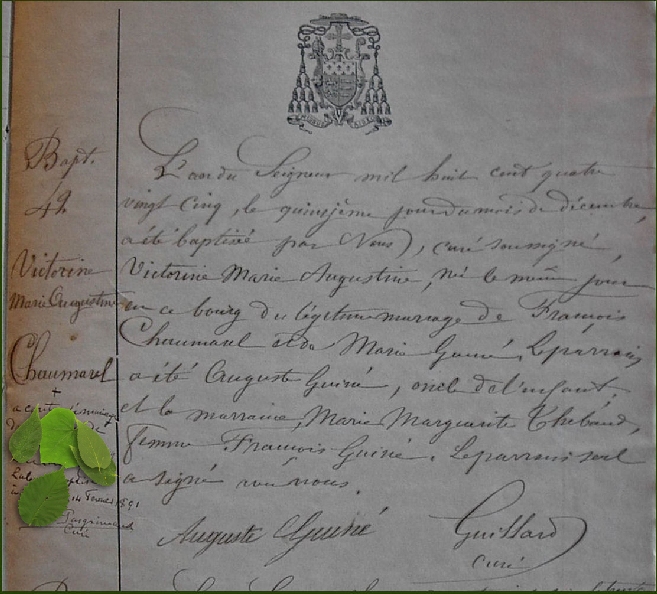 Bapt.
42
Victorine
Marie Augustine
Chaumarel
+
14 Fevrier 1891
Curé
L'an du Seigneur mil huit cent quatre
vingt cinq, le quinzième jour du mois de décembre,
a été baptisé par Nous, curé soussigné,
Victorine Marie Augustine, né le même jour
en ce bourg du légitime mariage de François
Chaumarel et de Marie Guiné, Le parrain
a été Auguste Guiné, oncle de l'enfant,
et la marraine, Marie Marguerite Thébaud,
femme François Guiné. Le parrain seul
a signé avec nous.
Auguste Guiné
Guillard
curé